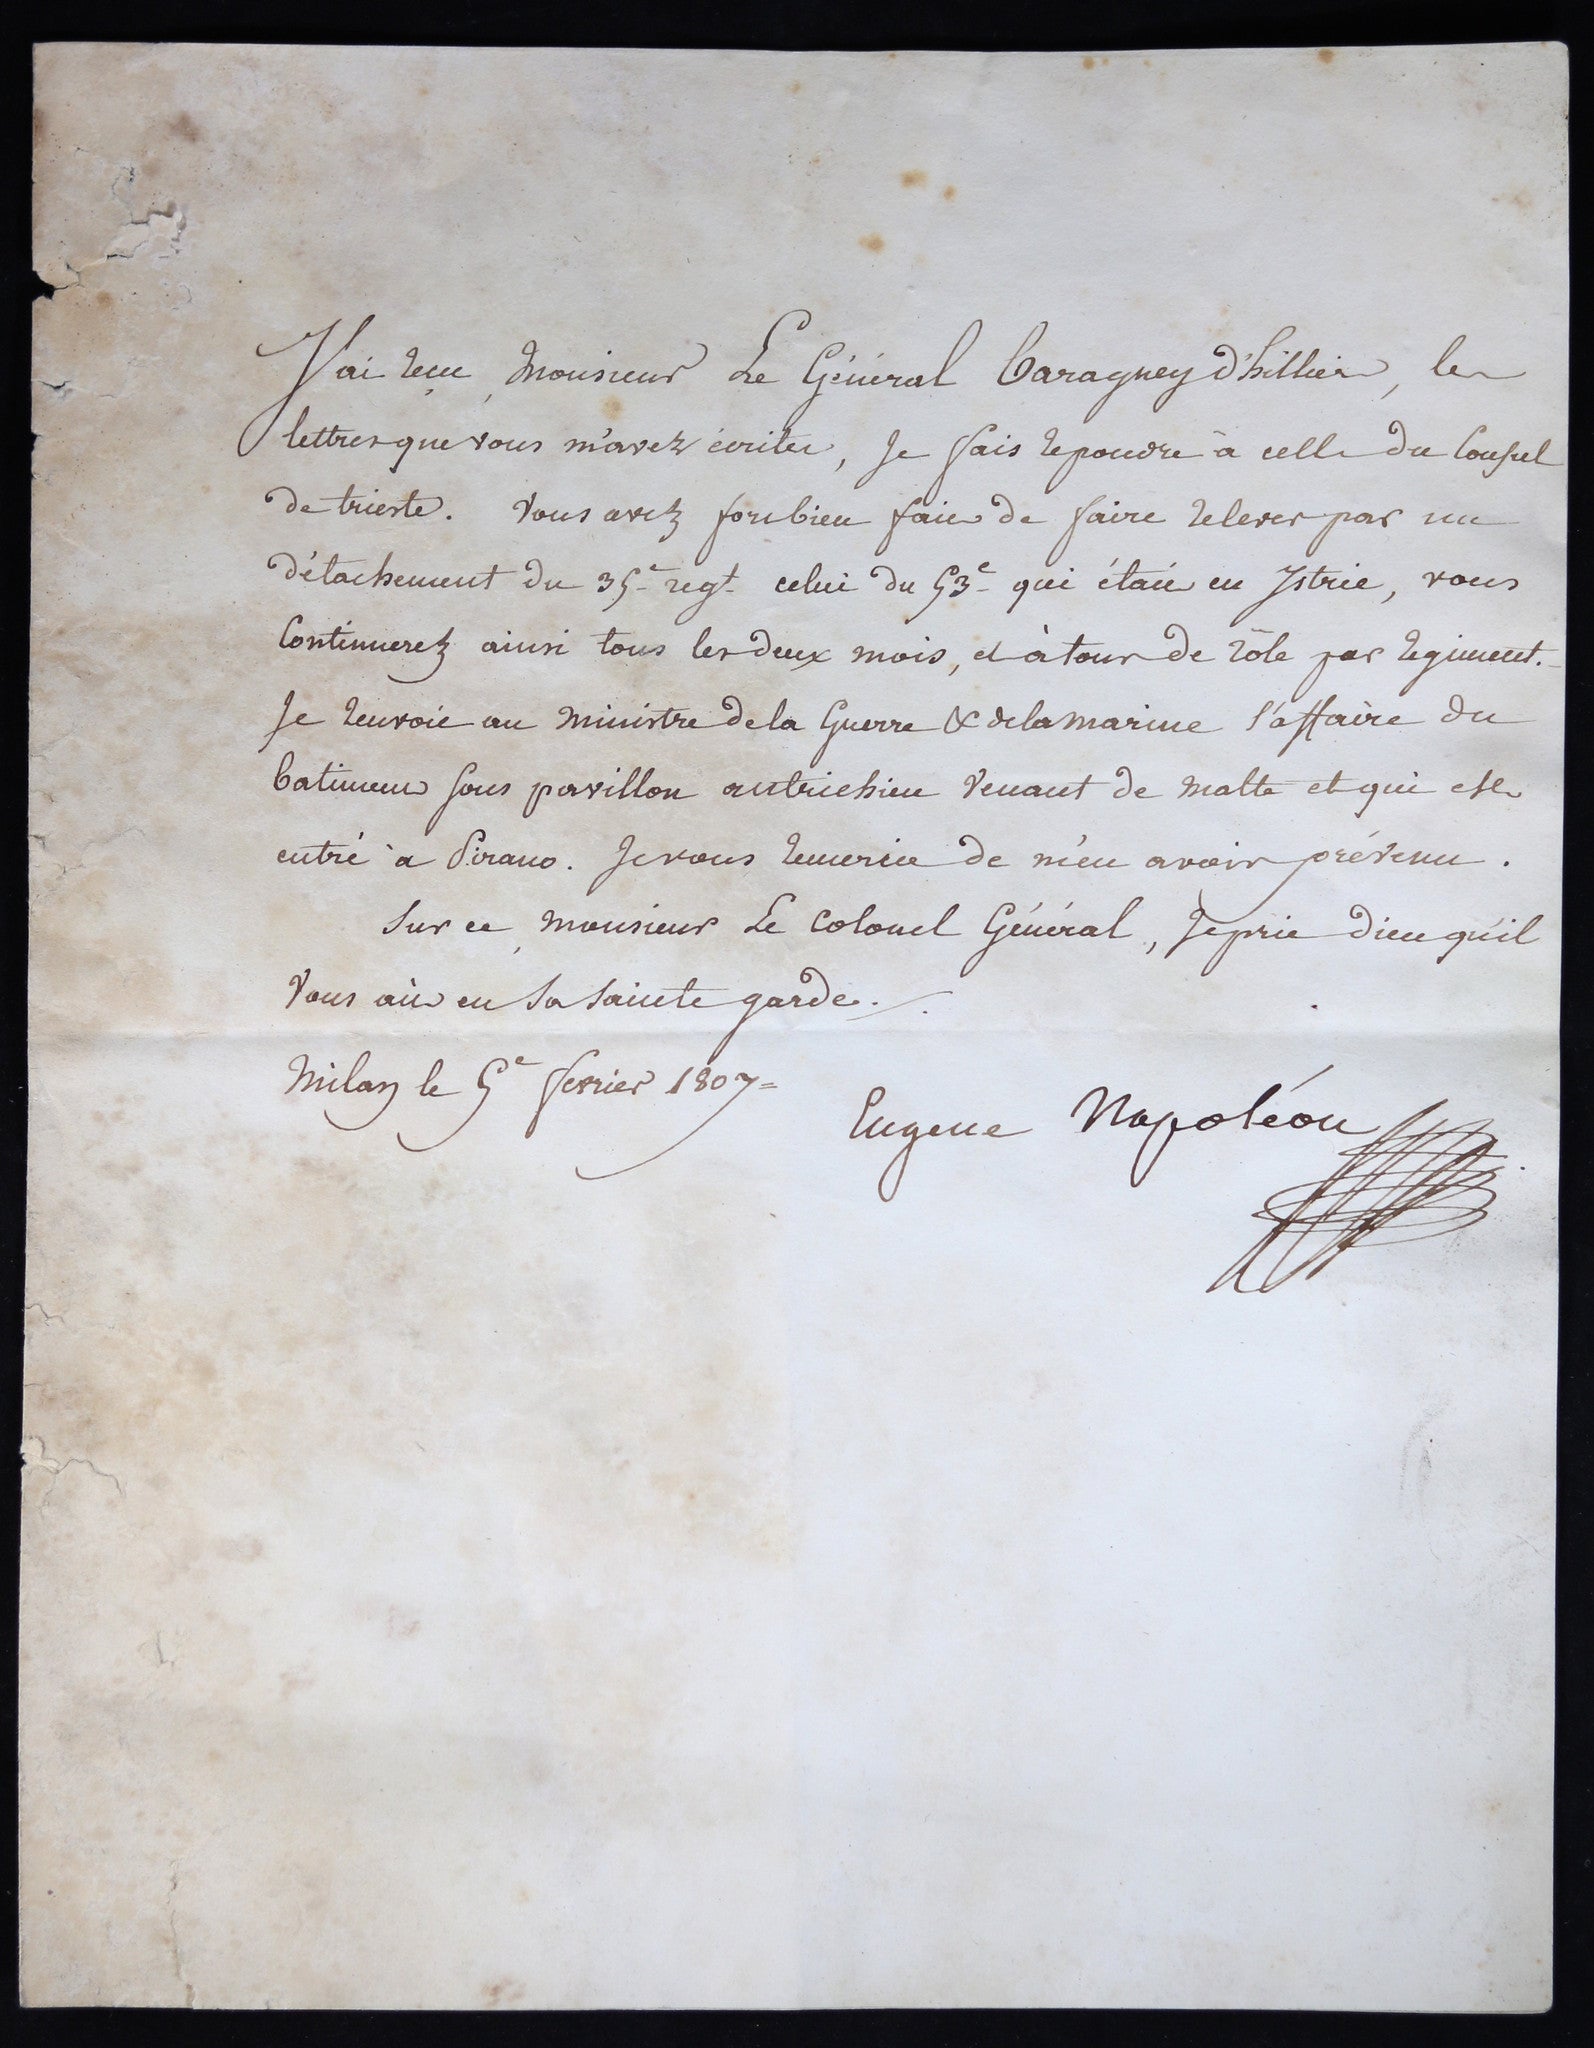 J'ai reçu, Monsieur Le Général Baraguey d'hilliers, les
lettres que vous m'avez écrites, Je fais repondre à celle du Consul
de trieste. Vous avez fort bien fait de faire relever par un
détachement du 35e regt celui du 53e qui était en Istrie, vous
continuerez ainsi tous les deux mois, et à tour de rôle par regiment.
Je renvoie au ministre de la Guerre & de la marine l'affaire du
batiment sous pavillon autrichien venant de malte et qui est
entré à Pirano. Je vous remercie de m'en avoir prévenu.
Sur ce, monsieur Le Colonel Général, Je prie dieu qu'il
vous ait en sa sainte garde./.
Milan le 5e fevrier 1807=
Eugene Napoléon